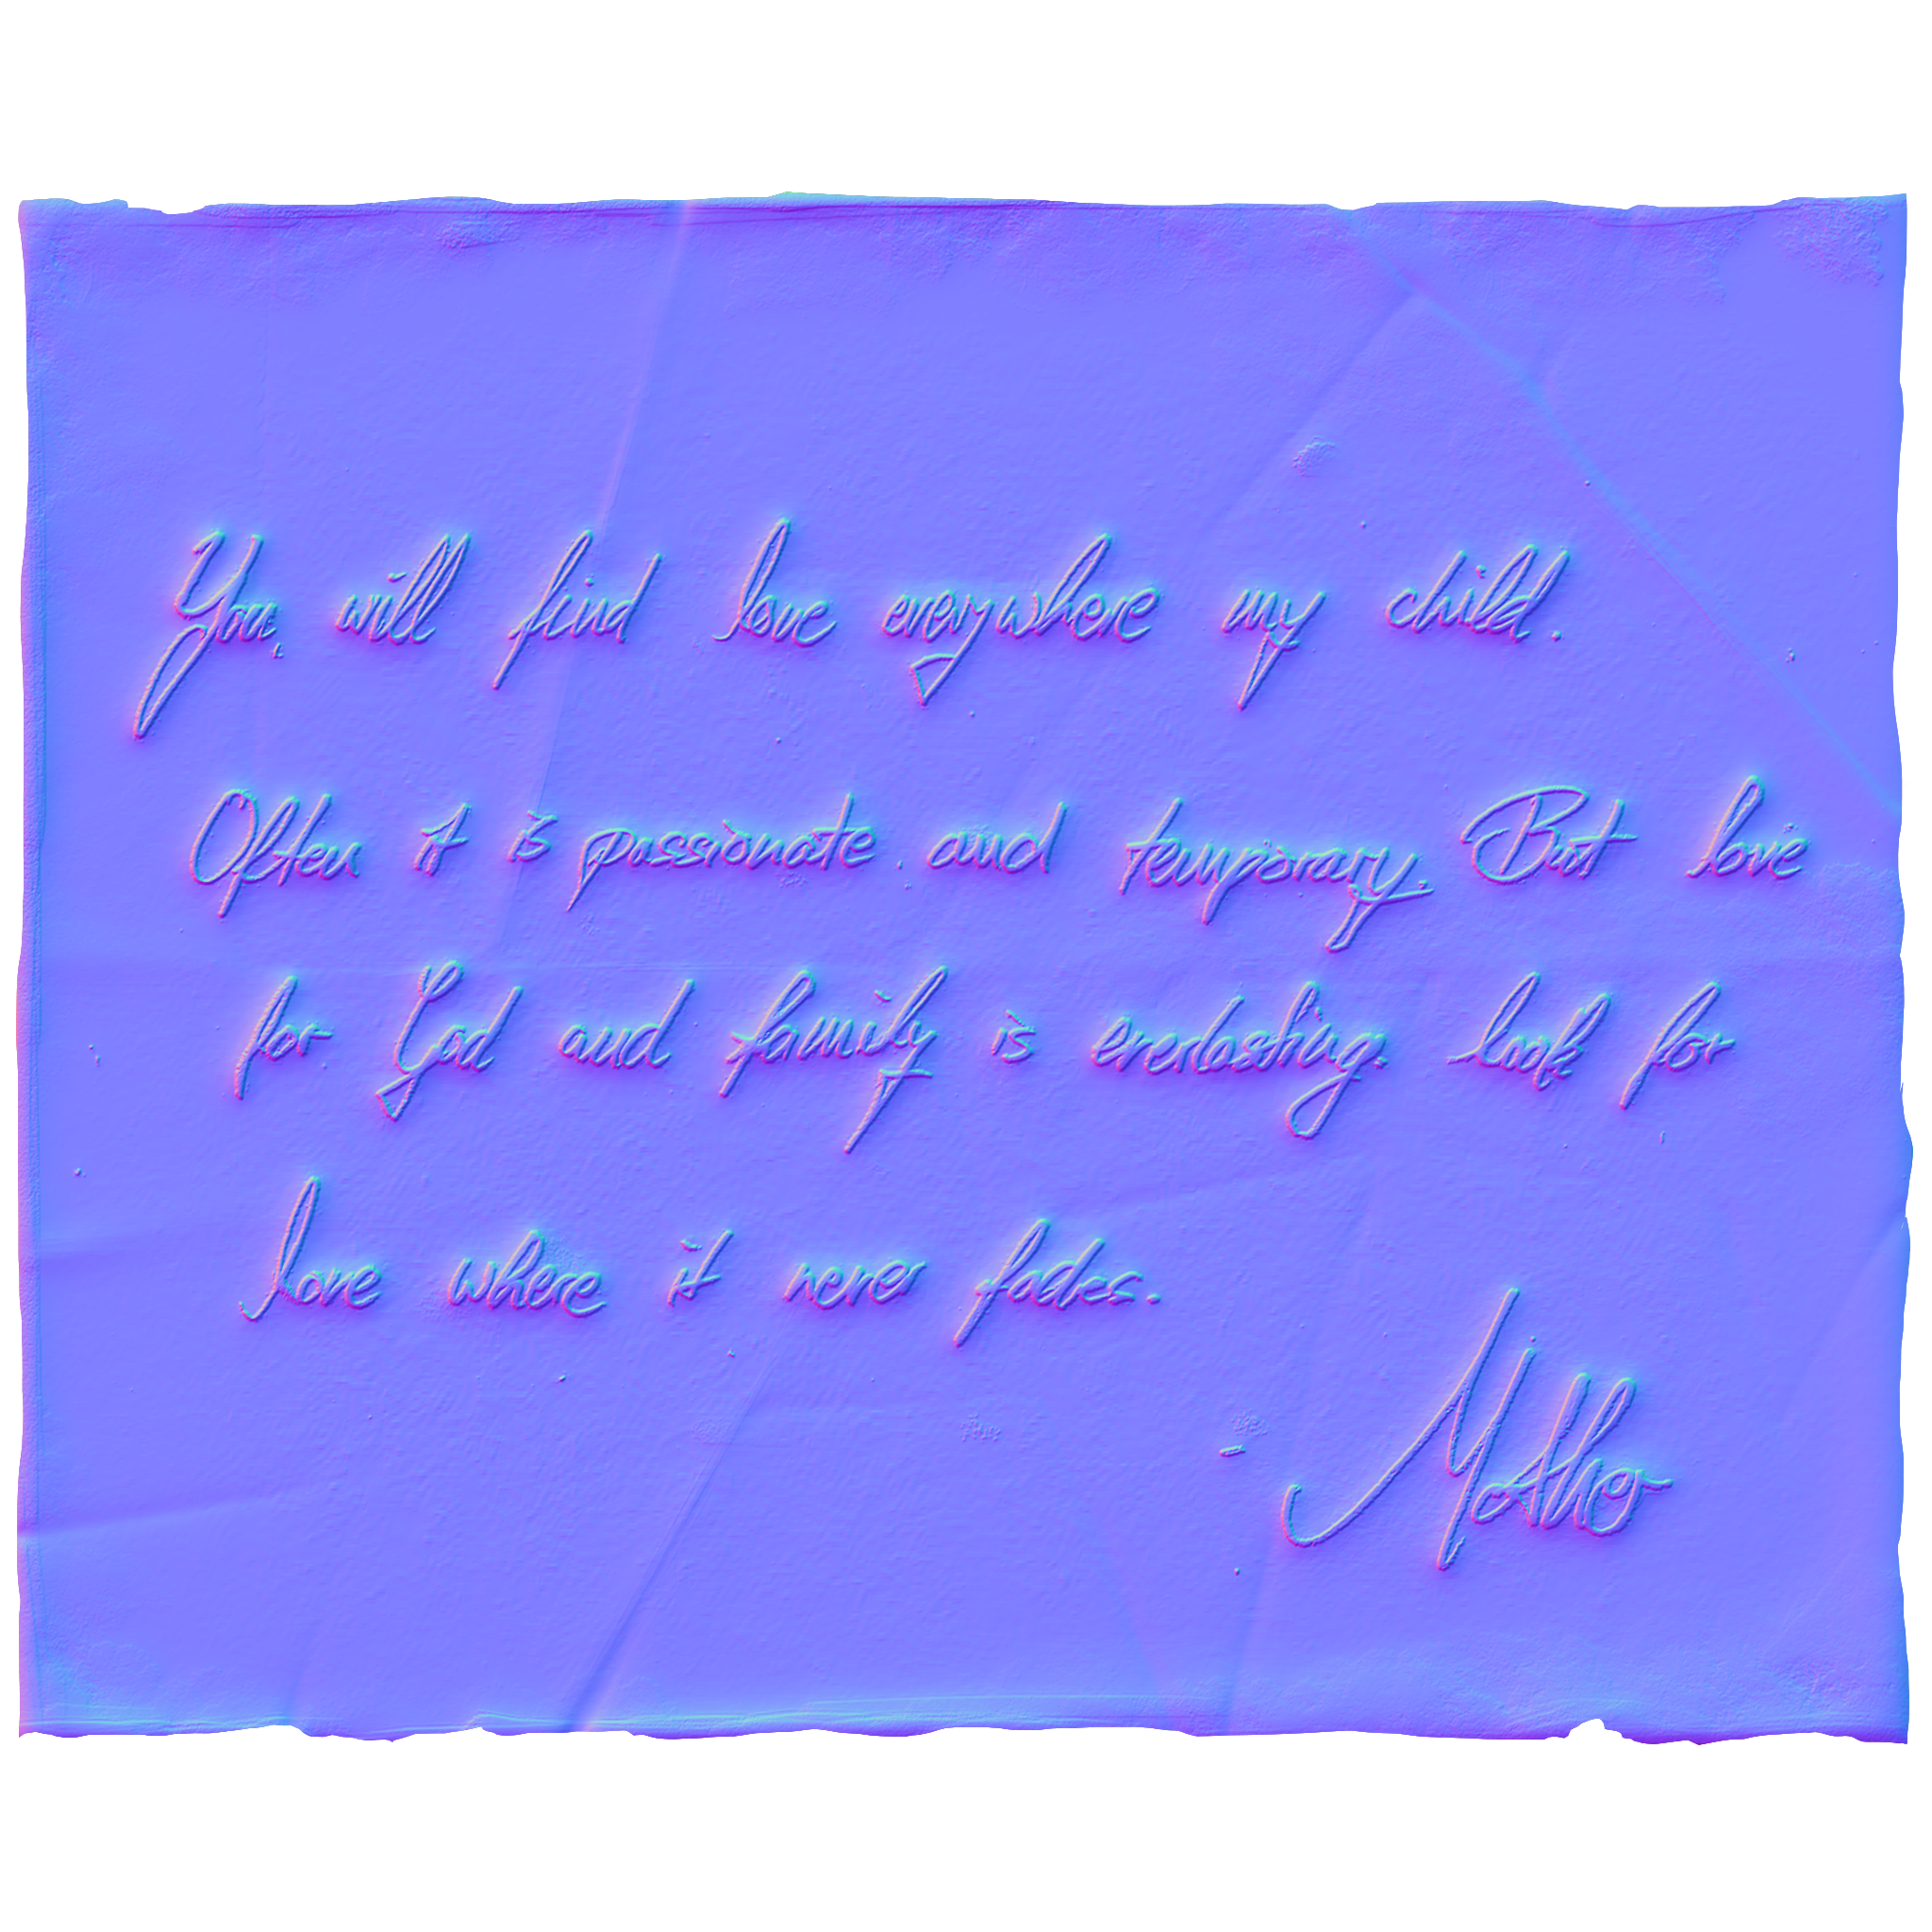 You will find love everywhere my child.
Often it is passionate and temporary. But love
for God and family is everlasting. look for
love where it never fades.
- Mother